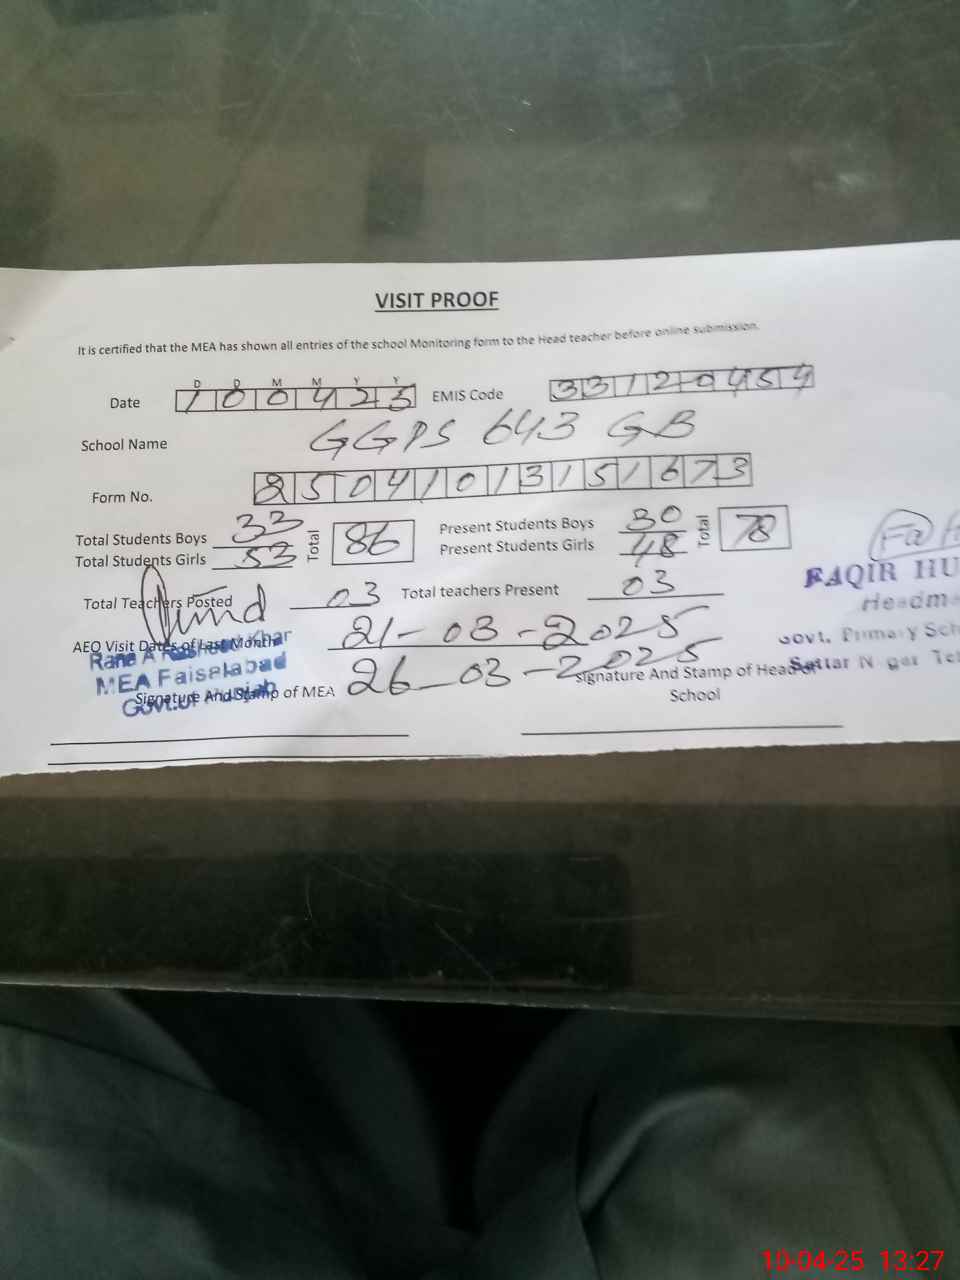 VISIT PROOF
It is certified that the MEA has shown all entries of the school Monitoring form to the Head teacher before online submission.
D D M M Y Y
Date 1 0 0 4 2 5 EMIS Code 3 3 1 2 0 4 5 4
School Name GGPS 643 GB
Form No. 2 5 0 4 1 0 1 3 1 5 1 6 7 3
Total Students Boys 33 Total 86 Present Students Boys 30 Total 78
Total Students Girls 53 Present Students Girls 48
FAQIR HU
Total Teachers Posted 03 Total teachers Present 03
Headm
AEO Visit Dates of Last Month 21-03-2025
Govt. Primary Sch
Rana A
MEA Faisalabad 26-03-2025
Signature And Stamp of Head of School
Sattar N gar
Govt.of Punjab
Signature And Stamp of MEA
10-04-25 13:27